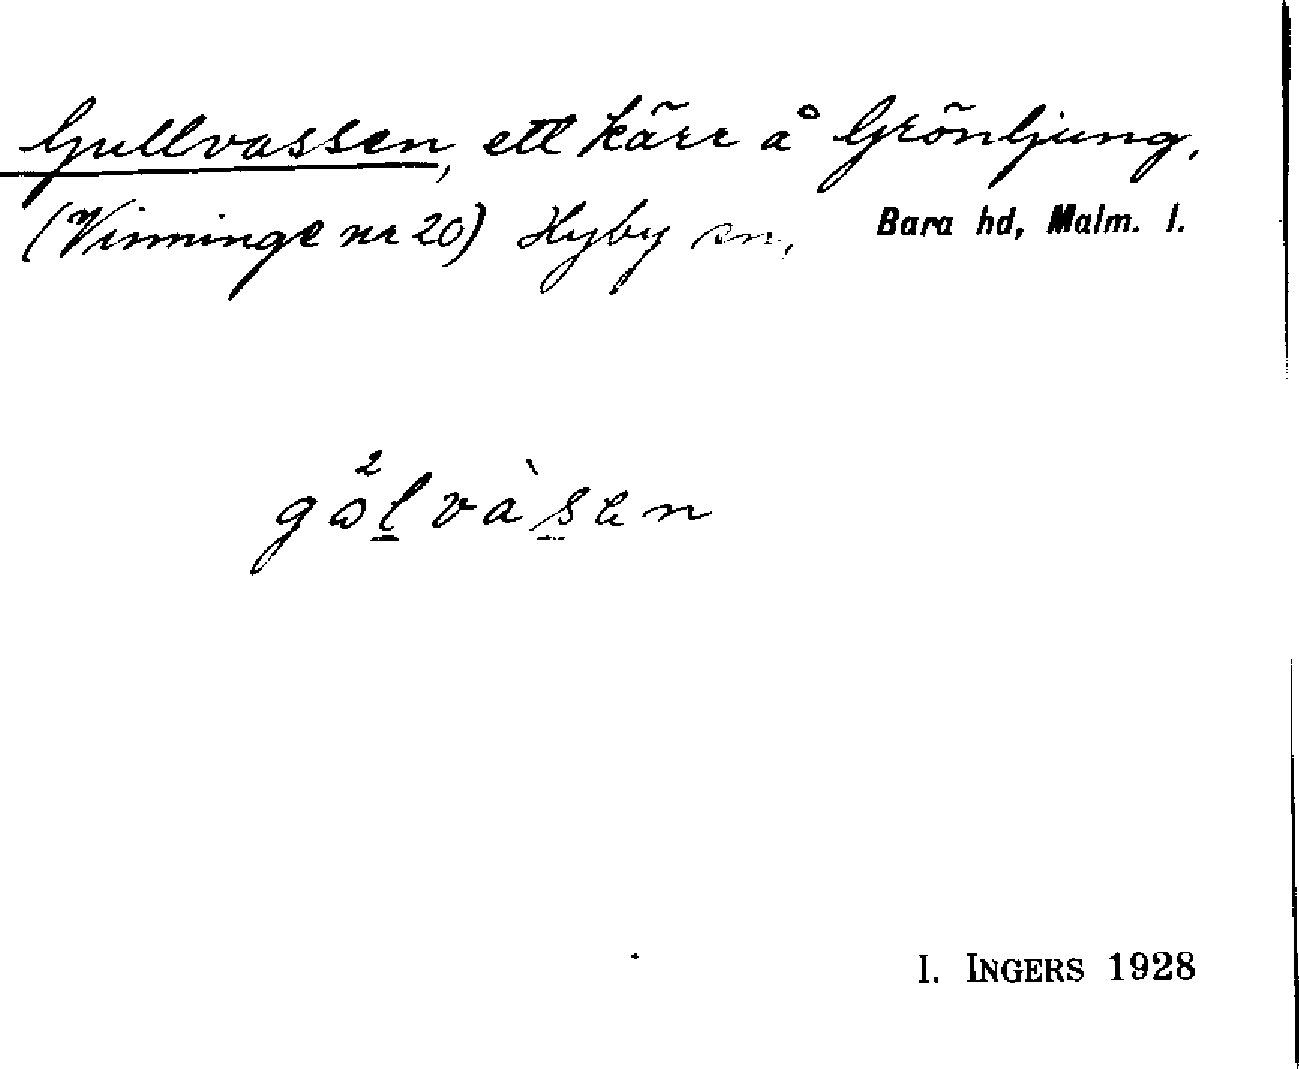 Gullvassen, ett kärr å Grönljung,
(Vinninge nr 20) Hyby sn, Bara hd, Malm. l.
gω̊²l̲vàs̲en
I. INGERS 1928